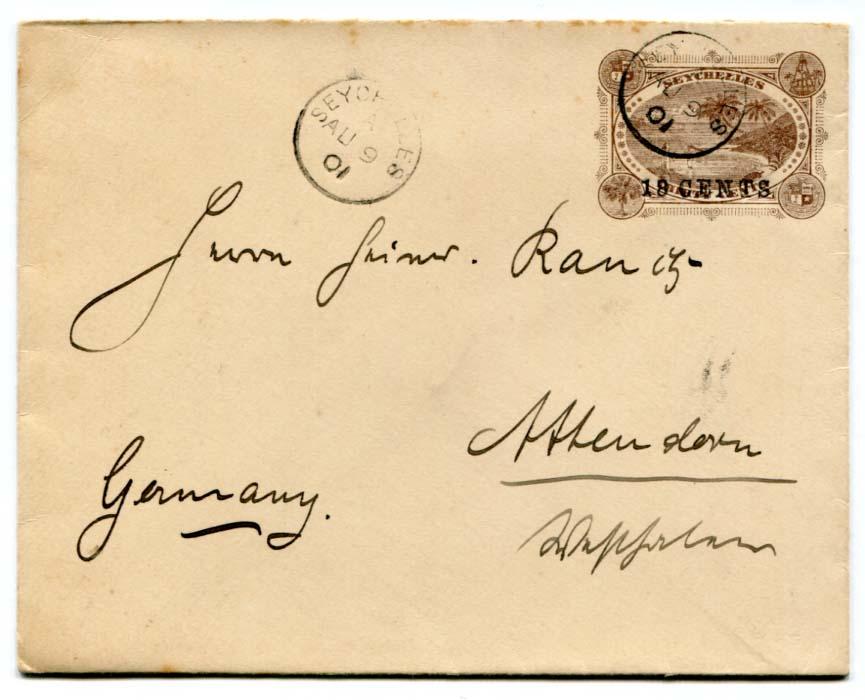 SEYCHELLES
A
AU 9
01
SEYCHELLES
18 CENTS
Herrn Heinr. Rauch
Attendorn
Germany.
Westfalen